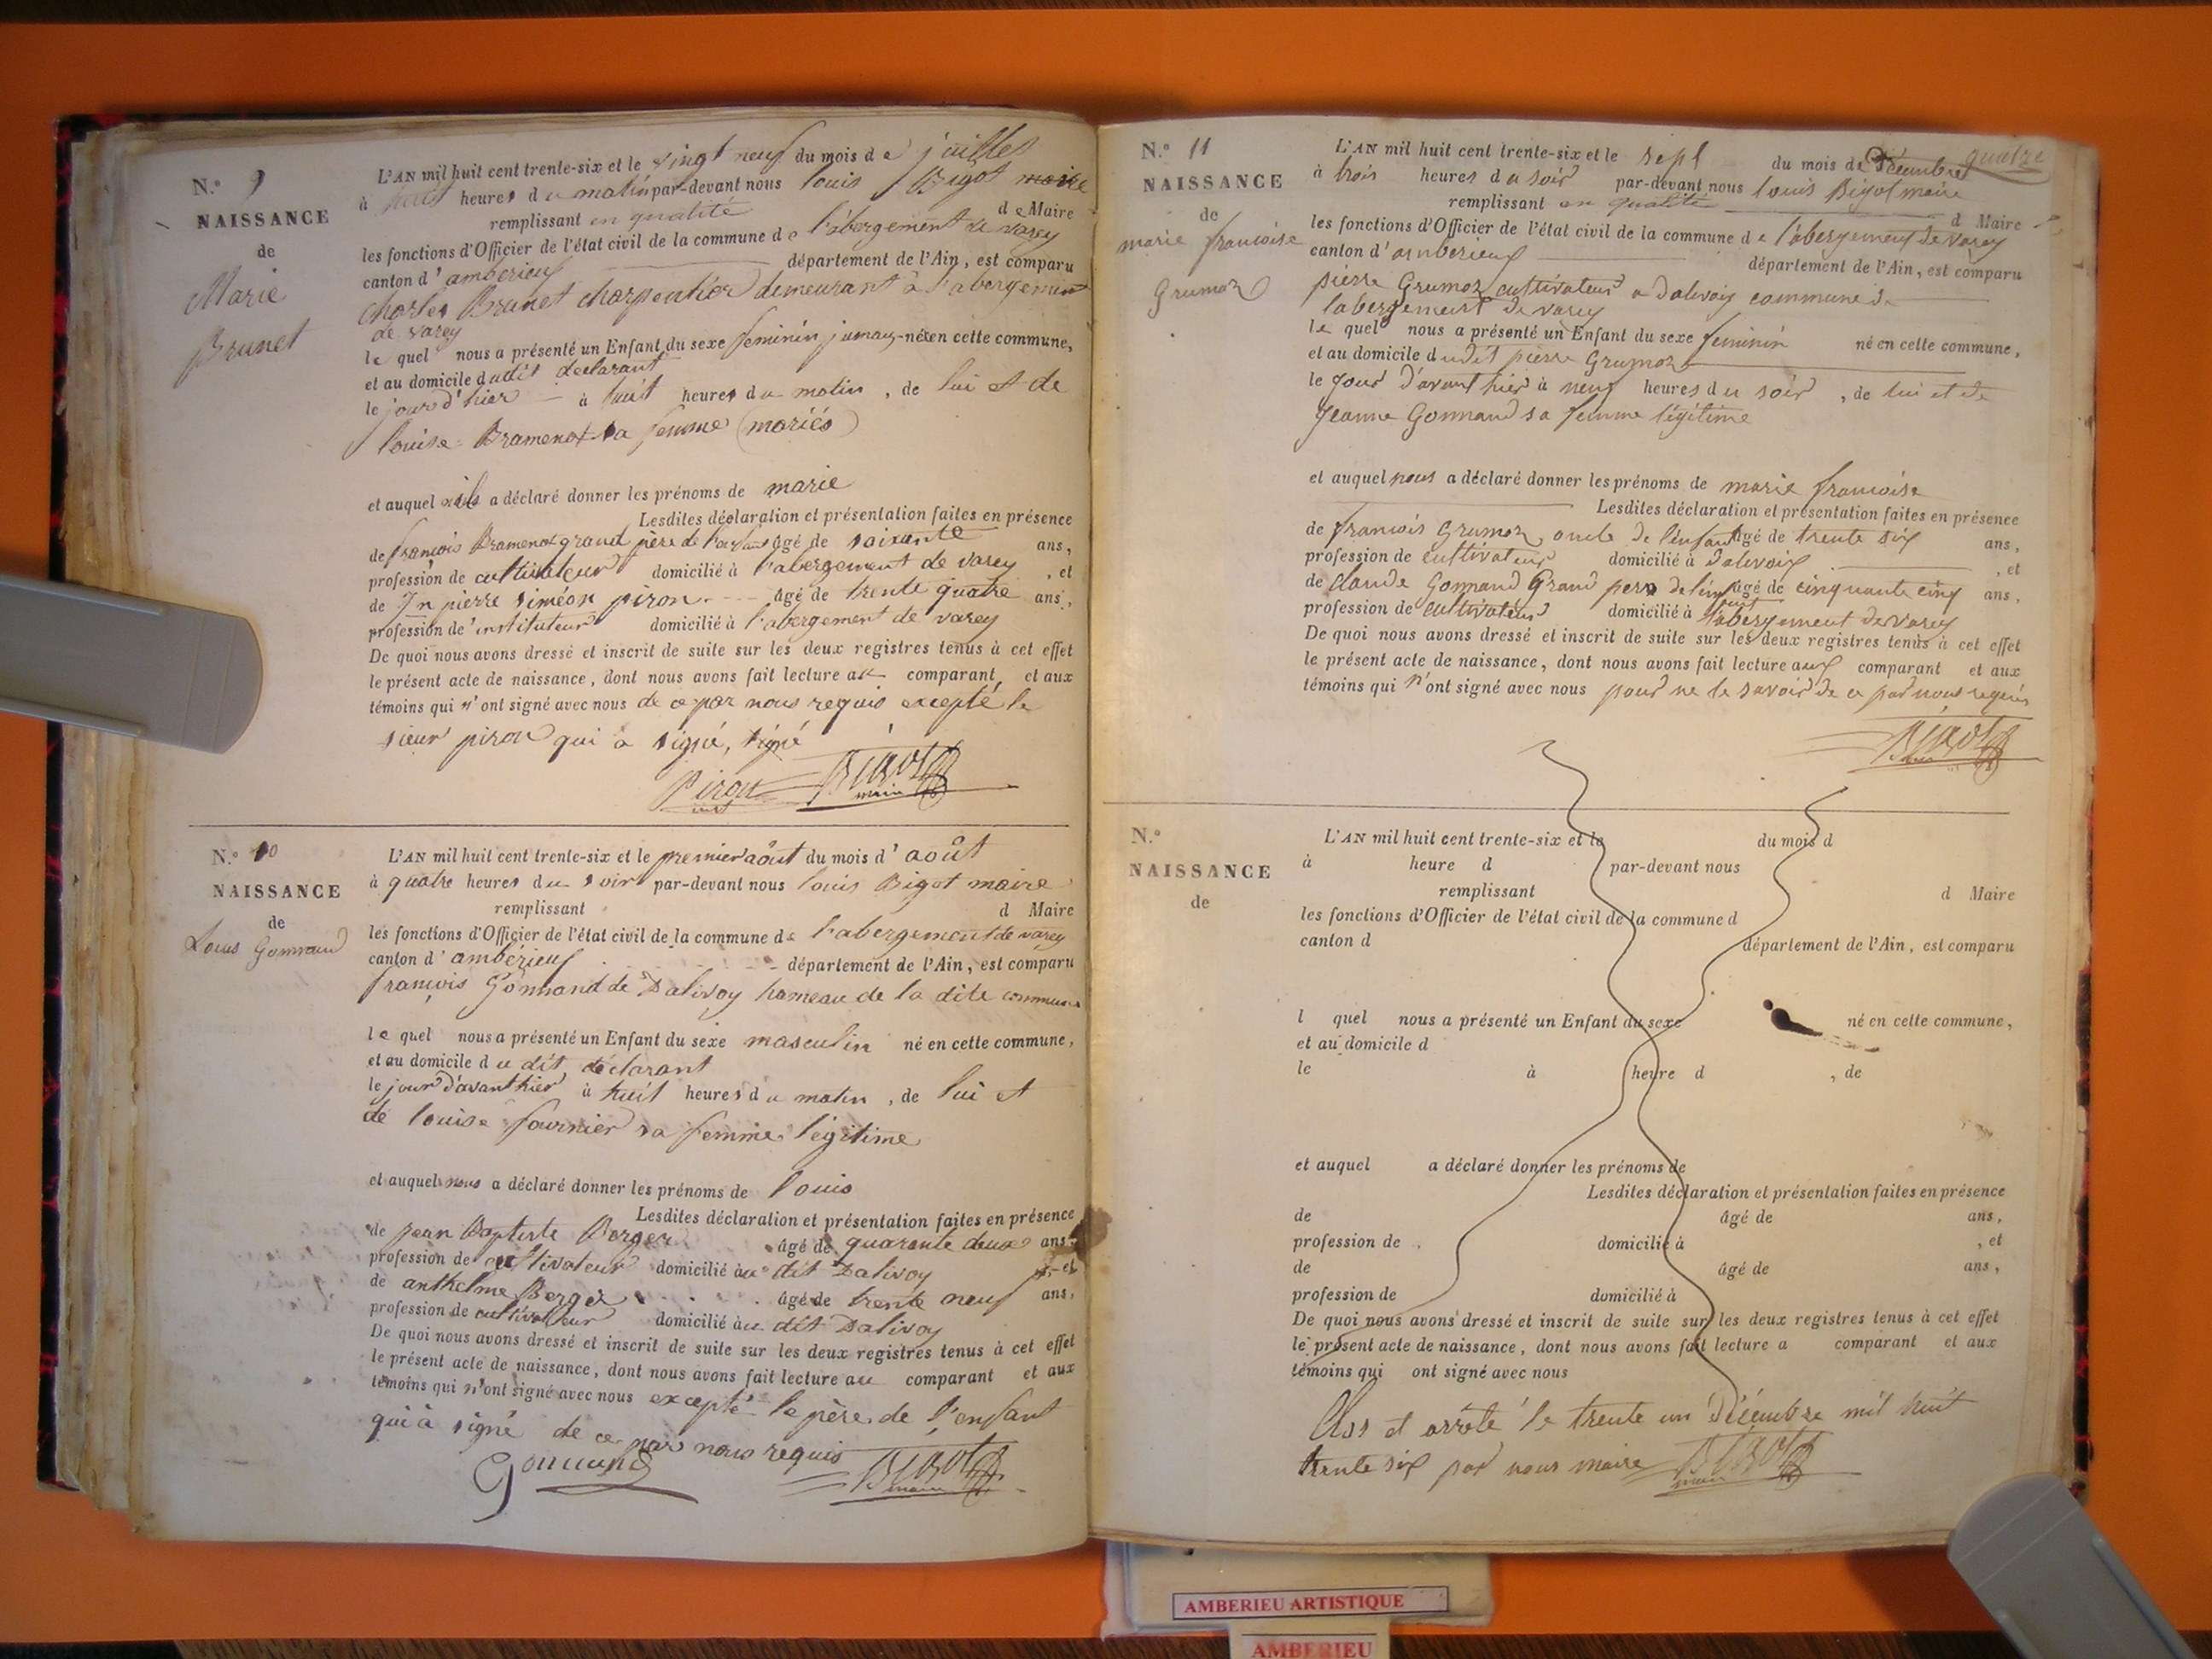 N.° 9
NAISSANCE
de
Marie
Brunet
L'AN mil huit cent trente-six et le vingt neuf du mois de juillet
à heures du matin par-devant nous louis Bigot maire
remplissant en qualité de Maire
les fonctions d'Officier de l'état civil de la commune de l'abergement de varey
canton d'amberieux département de l'Ain, est comparu
charles Brunet charpentier demeurant à l'abergement
de varey
le quel nous a présenté un Enfant du sexe feminin née en cette commune,
et au domicile dudit declarant
le jour d'hier à huit heures du matin, de lui et de
louise Bramenot sa femme (mariés)
et auquel a déclaré donner les prénoms de marie
Lesdites déclaration et présentation faites en présence
de françois Bramenot grand père de l'enfant âgé de soixante ans,
profession de cultivateur domicilié à l'abergement de varey, et
de Jn pierre siméon piron âgé de trente quatre ans,
profession de instituteur domicilié à l'abergement de varey
De quoi nous avons dressé et inscrit de suite sur les deux registres tenus à cet effet
le présent acte de naissance, dont nous avons fait lecture au comparant et aux
témoins qui n'ont signé avec nous de ce par nous requis excepté le
sieur piron qui a signé, signé
Piron Bigot
maire
N.° 10
NAISSANCE
de
Louis Gonnand
L'AN mil huit cent trente-six et le premier août du mois d'août
à quatre heures du soir par-devant nous louis Bigot maire
remplissant d Maire
les fonctions d'Officier de l'état civil de la commune de l'abergement de varey
canton d'ambérieux département de l'Ain, est comparu
françois Gonnand de Dalivoy hameau de la dite commune
le quel nous a présenté un Enfant du sexe masculin né en cette commune,
et au domicile du dit déclarant
le jour d'avant hier à huit heures du matin, de lui et
de louise fournier sa femme légitime
et auquel nous a déclaré donner les prénoms de louis
Lesdites déclaration et présentation faites en présence
de jean Baptiste Berger âgé de quarante deux ans,
profession de cultivateur domicilié au dit Dalivoy, et
de anthelme Berger âgé de trente neuf ans,
profession de cultivateur domicilié au dit Dalivoy
De quoi nous avons dressé et inscrit de suite sur les deux registres tenus à cet effet
le présent acte de naissance, dont nous avons fait lecture au comparant et aux
témoins qui n'ont signé avec nous excepté le père de l'enfant
qui à signé de ce par nous requis
Gonnand Bigot
maire
N.° 11
NAISSANCE
de
marie francoise
Grumoz
L'AN mil huit cent trente-six et le sept du mois de Décembre quatre
à trois heures du soir par-devant nous louis Bigot maire
remplissant en qualité d Maire
les fonctions d'Officier de l'état civil de la commune de l'abergement de varey
canton d'amberieux département de l'Ain, est comparu
pierre Grumoz cultivateur a dalivoy commune de
labergement de varey
le quel nous a présenté un Enfant du sexe feminin né en cette commune,
et au domicile dudit pierre Grumoz
le jour d'avant hier à neuf heures du soir, de lui et de
jeanne Gonnand sa femme légitime
et auquel nous a déclaré donner les prénoms de marie francoise
Lesdites déclaration et présentation faites en présence
de francois Grumoz oncle de l'enfant âgé de trente six ans,
profession de cultivateur domicilié à Dalivoy, et
de claude Gonnand Grand pere de lenfant âgé de cinquante cinq ans,
profession de cultivateur domicilié à l'abergement de varey
De quoi nous avons dressé et inscrit de suite sur les deux registres tenus à cet effet
le présent acte de naissance, dont nous avons fait lecture aux comparant et aux
témoins qui n'ont signé avec nous pour ne le savoir de ce par nous requis
Bigot
N.°
NAISSANCE
de
L'AN mil huit cent trente-six et le du mois d
à heure d par-devant nous
remplissant d Maire
les fonctions d'Officier de l'état civil de la commune d
canton d département de l'Ain, est comparu
l quel nous a présenté un Enfant du sexe né en cette commune,
et au domicile d
le à heure d , de
et auquel a déclaré donner les prénoms de
Lesdites déclaration et présentation faites en présence
de âgé de ans,
profession de domicilié à , et
de âgé de ans,
profession de domicilié à
De quoi nous avons dressé et inscrit de suite sur les deux registres tenus à cet effet
le présent acte de naissance, dont nous avons fait lecture a comparant et aux
témoins qui ont signé avec nous
Clos et arrêté le trente un Décembre mil huit
trente six par nous maire Bigot
maire
AMBERIEU ARTISTIQUE
AMBERIEU